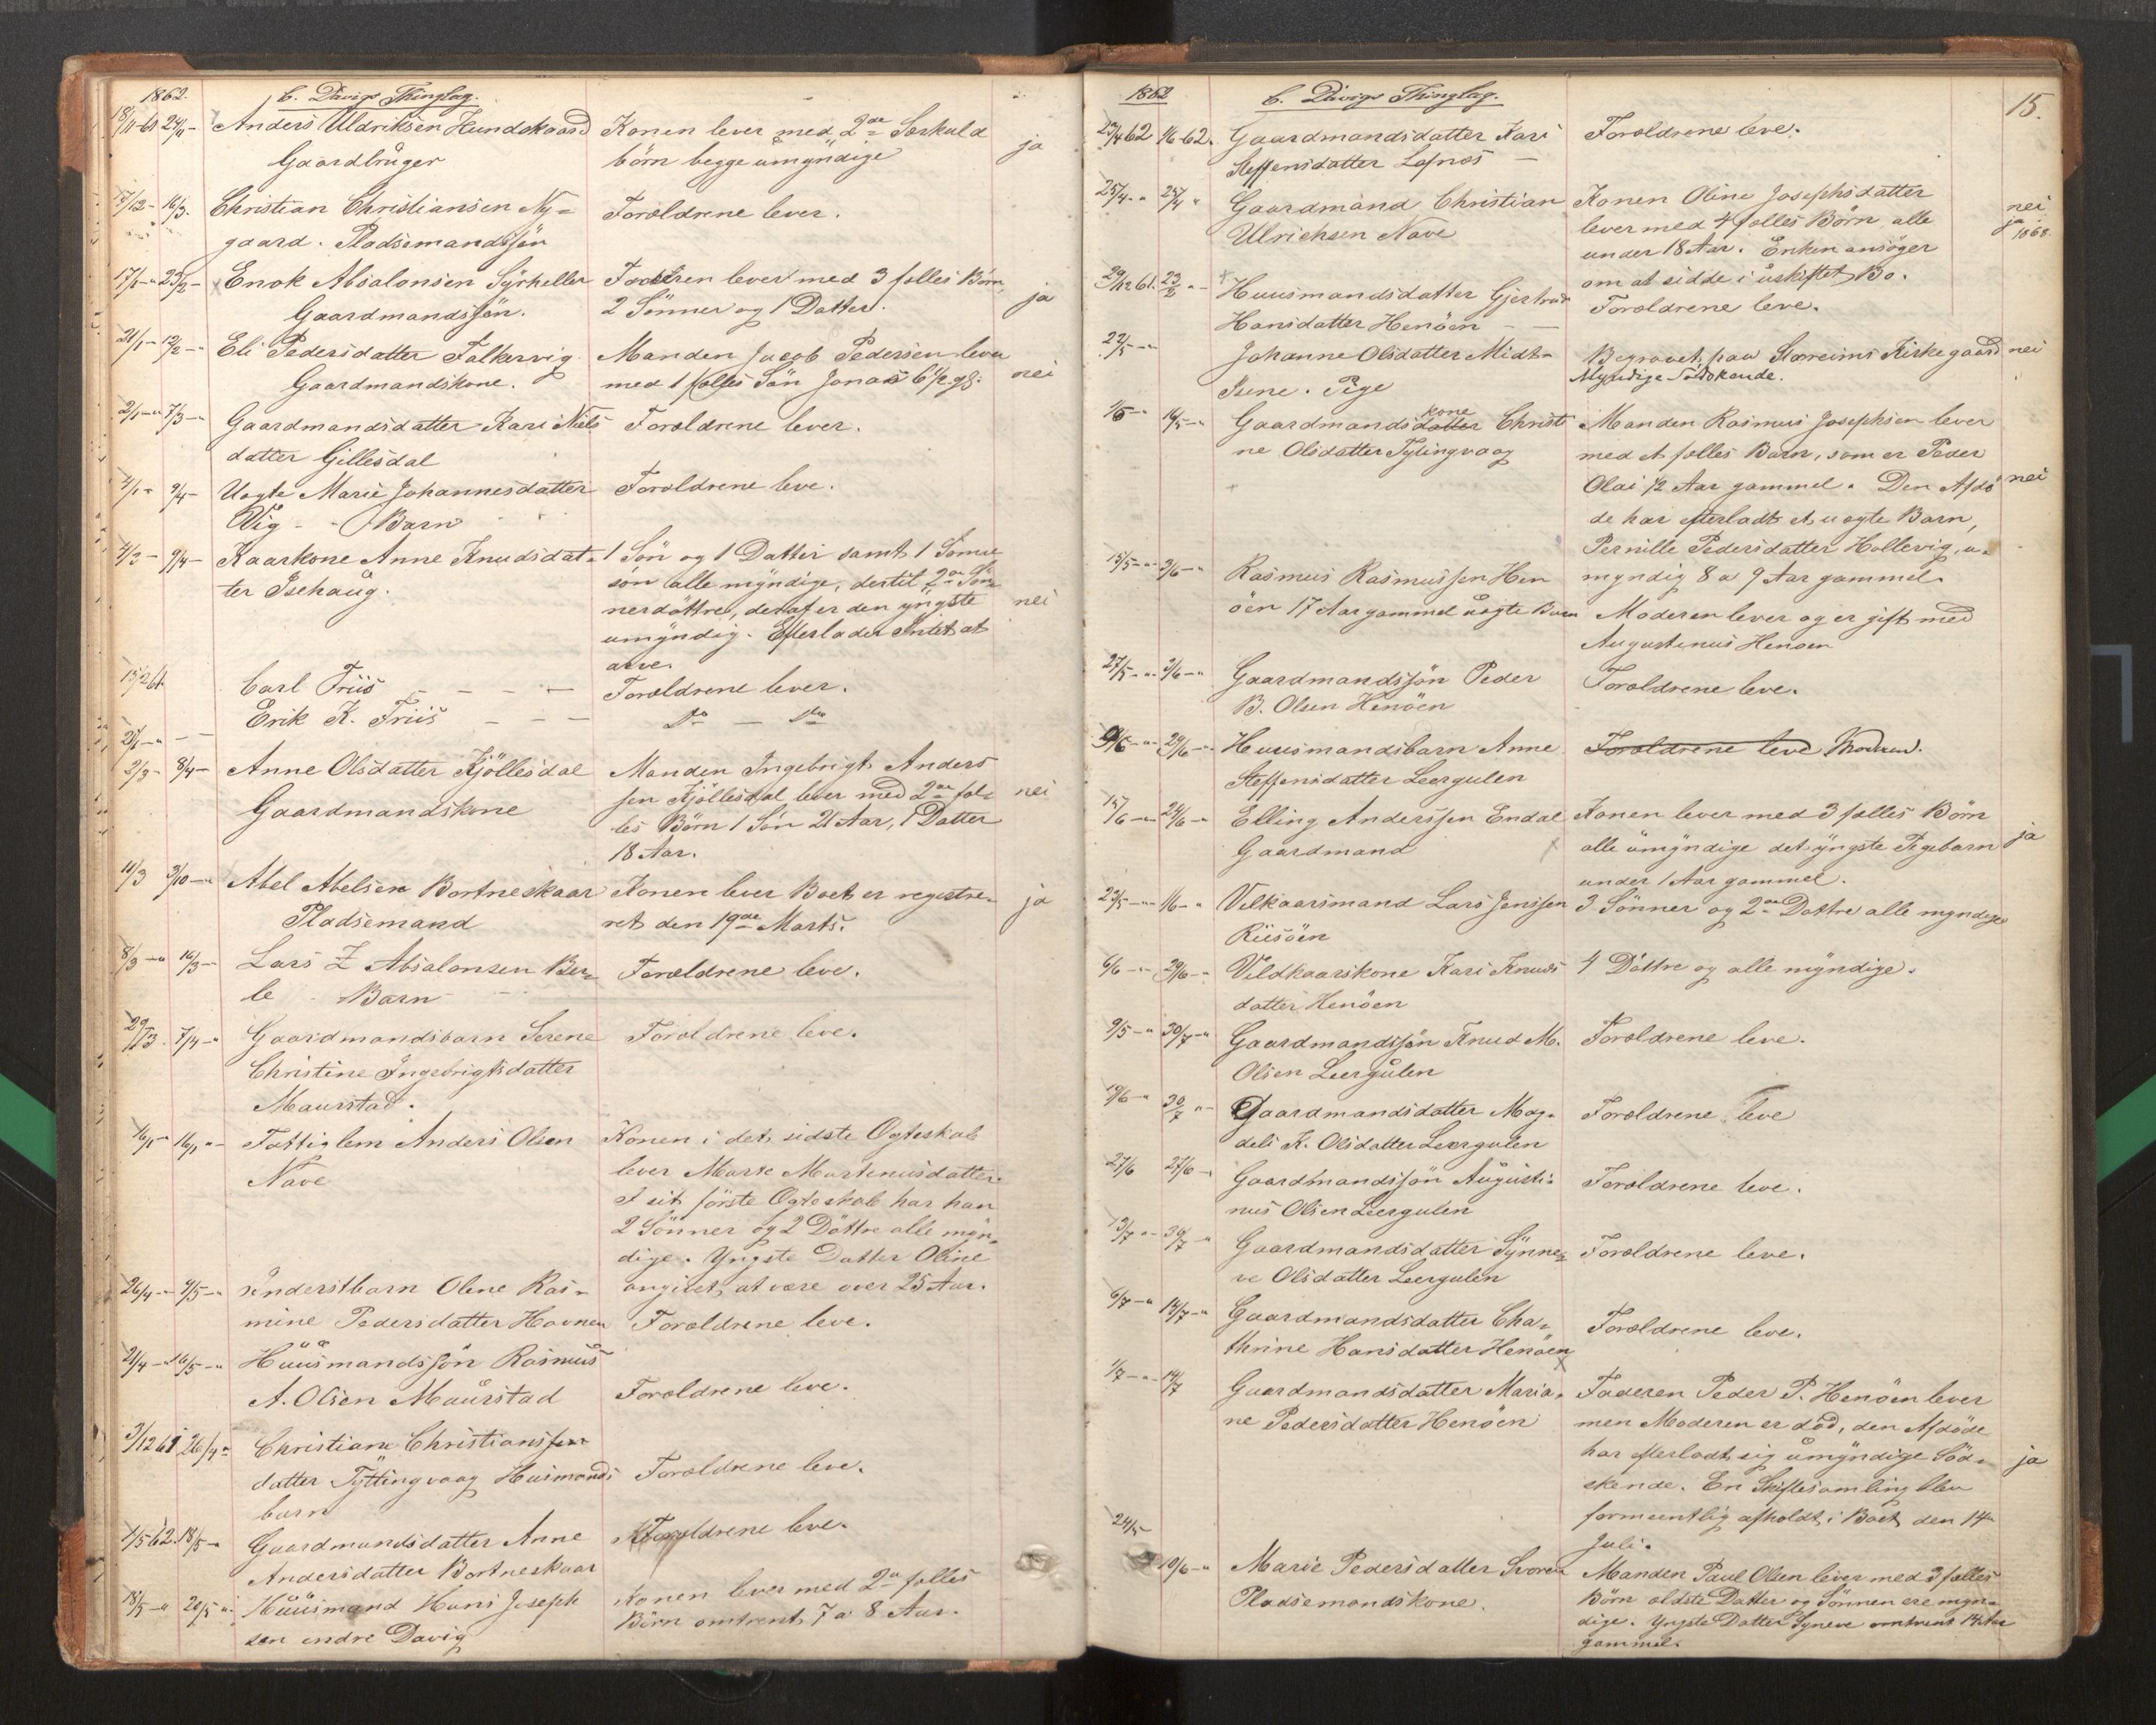 1862. C. Davigs Thinglag.
18/11-61 24/1- Anders Uldriksen Hundskaard Konen lever med 2de Særkuld ja
Gaardbruger børn begge umyndige
17/12- 16/3- Christian Christiansen Ny= Forældrene lever.
gaard. Pladsemandssøn
17/1-" 23/2- Enok Absalonsen Sørheller lever med 3 fælles Børn, ja
Gaardmandssøn. 2 Sønner og 1 Datter.
21/1-" 12/2-" Eli Pedersdatter Falkevig Manden Jacob Pedersen lever
Gaardmandskone. med 1 fælles Søn Jonas 6 1/2 gl. nei
2/1-" 7/3-" Gaardmandsdatter Kari Niels Forældrene lever.
datter Gillesdal
4/1-" 9/4- Uægte Marie Johannesdatter Forældrene leve.
Vig - - Barn
4/3- 9/4- Kaarkone Anne Knudsdat= 1 Søn og 1 Datter samt 1 Sønne
ter Isehaug. søn alle myndige, dertil 2de Søn=
nerdøttre, deraf er den yngste nei
umyndig. Efterlader Intet at
arve.
15/2 61. Carl Friis - - - - Forældrene lever.
Erik K. Friis - - - Do - Do
2/3- 8/4- Anne Olsdatter Kjøllesdal Manden Ingebrigt Anders
Gaardmandskone sen Kjøllesdal lever med 2de fæl= nei
les Børn 1 Søn 21 Aar, 1 Datter
18 Aar.
11/3 3/10-" Abel Abelsen Bortneskaar Konen lever Boet er registre= ja
Pladsemand ret den 19de Marts.
8/3-" 16/3- Lars Z Absalonsen Ber= Forældrene leve.
le - Barn -
29/3. 7/4-" Gaardmandsbarn Serene Forældrene leve.
Christine Ingebrigtsdatter
Maurstad.
16/1-" 16/1"- Fattiglem Anders Olsen Konen i det sidste Ægteskab
Nave lever Marte Martinusdatter.
I sit første Ægteskab har han
2 Sønner og 2 Døttre alle myn=
dige. Yngste Datter Oline
26/4-" 9/5-" Inderstbarn Oline Ras= angivet, at være over 25 Aar.
mine Pedersdatter Havnen Forældrene leve.
21/4-" 16/5-" Huusmandssøn Rasmus
A. Olsen Maurstad Forældrene leve.
3/12 61 26/4" Christiane Christians
datter Tyttingvaag Husmands Forældrene leve.
barn
1/5 62. 18/5-" Gaardmandsdatter Anne Forældrene leve.
Andersdatter Bortneskaar
18/5-" 20/5-" Huusmand Hans Joseph Konen lever med 2de fælles
sen indre Davig Børn omtrent 7 a 8 Aar.
1862 C. Davigs Thinglag. 15.
23/4 62 1/6-62. Gaardmandsdatter Kari Forældrene leve.
Steffensdatter Lefnæs -
25/4-" 25/4 " Gaardmand Christian Konen Oline Josephsdatter nei
Ulrichsen Nave lever med 4 fælles Børn, alle ja 1868.
under 18 Aar. Enken ansøger
29/12 61. 23/2 "- Huusmandsdatter Gjertrud om at sidde i uskiftet Bo.
Hansdatter Henøen - - Forældrene leve.
22/5-" Johanne Olsdatter Midt= Begravet paa Starreims Kirkegaard nei
Isene. Pige Myndige Södskende.
1/5-" 16/5-" Gaardmandsdatter kone Christi Manden Rasmus Josephsen lever
ne Olsdatter Tytingvaag med et fælles Barn, som er Peder
Olai 12 Aar gammel. Den Afdø nei
de har efterladt et uægte Barn,
Pernille Pedersdatter Hollevig, u=
15/5-" 3/6-" Rasmus Rasmussen Hen myndig 8 a 9 Aar gammel.
øen 17 Aar gammel uægte Barn Moderen lever og er gift med
Augustinus Henøen
27/5-" 3/6-" Gaardmandssøn Peder Forældrene leve.
B. Olsen Henøen
9/6-" 29/6-" Huusmandsbarn Anne Forældrene leve Moderen.
Steffensdatter Leergulen
15/6-" 24/6-" Elling Anderssen Endal Konen lever med 3 fælles Børn
Gaardmand alle umyndige det yngste Pigebarn ja
under 1 Aar gammel.
29/5-" 1/6-" Vilkaarsmand Lars Janssen 3 Sønner og 2de Døttre alle myndige
Riisøen
6/6-" 29/6-" Vildkaarskone Kari Knuds 4 Døttre og alle myndige.
datter Henøen
9/5-" 30/7-" Gaardmandssøn Knud M. Forældrene leve.
Olsen Leergulen
19/6-" 30/7 "- Gaardmandsdatter Mag= Forældrene leve
deli K. Olsdatter Leergulen
27/6 27/6-" Gaardmandssøn Augusti= Forældrene leve.
nus Olsen Leergulen
13/7-" 30/7-" Gaardmandsdatter Synne= Forældrene leve.
ve Olsdatter Leergulen
6/7-" 14/7-" Gaardmandsdatter Cha= Forældrene leve.
thrine Hansdatter Henøen
1/7-" 14/7 Gaardmandsdatter Maria= Faderen Peder P. Henøen lever
ne Pedersdatter Henøen men Moderen er død, den Afdøde
har efterladt sig umyndige Sød= ja
skende. En Skiftesamling blev
formeentlig afholdt i Boet den 14de
24/5 Juli.
10/6-" Marie Pedersdatter Svoren Manden Paul Olsen lever med 3 fælles
Pladsemandskone. Børn ældste Datter og Sønnen ere myn=
dige. Yngste Datter Syneve omtrent 14 Aar
gammel.